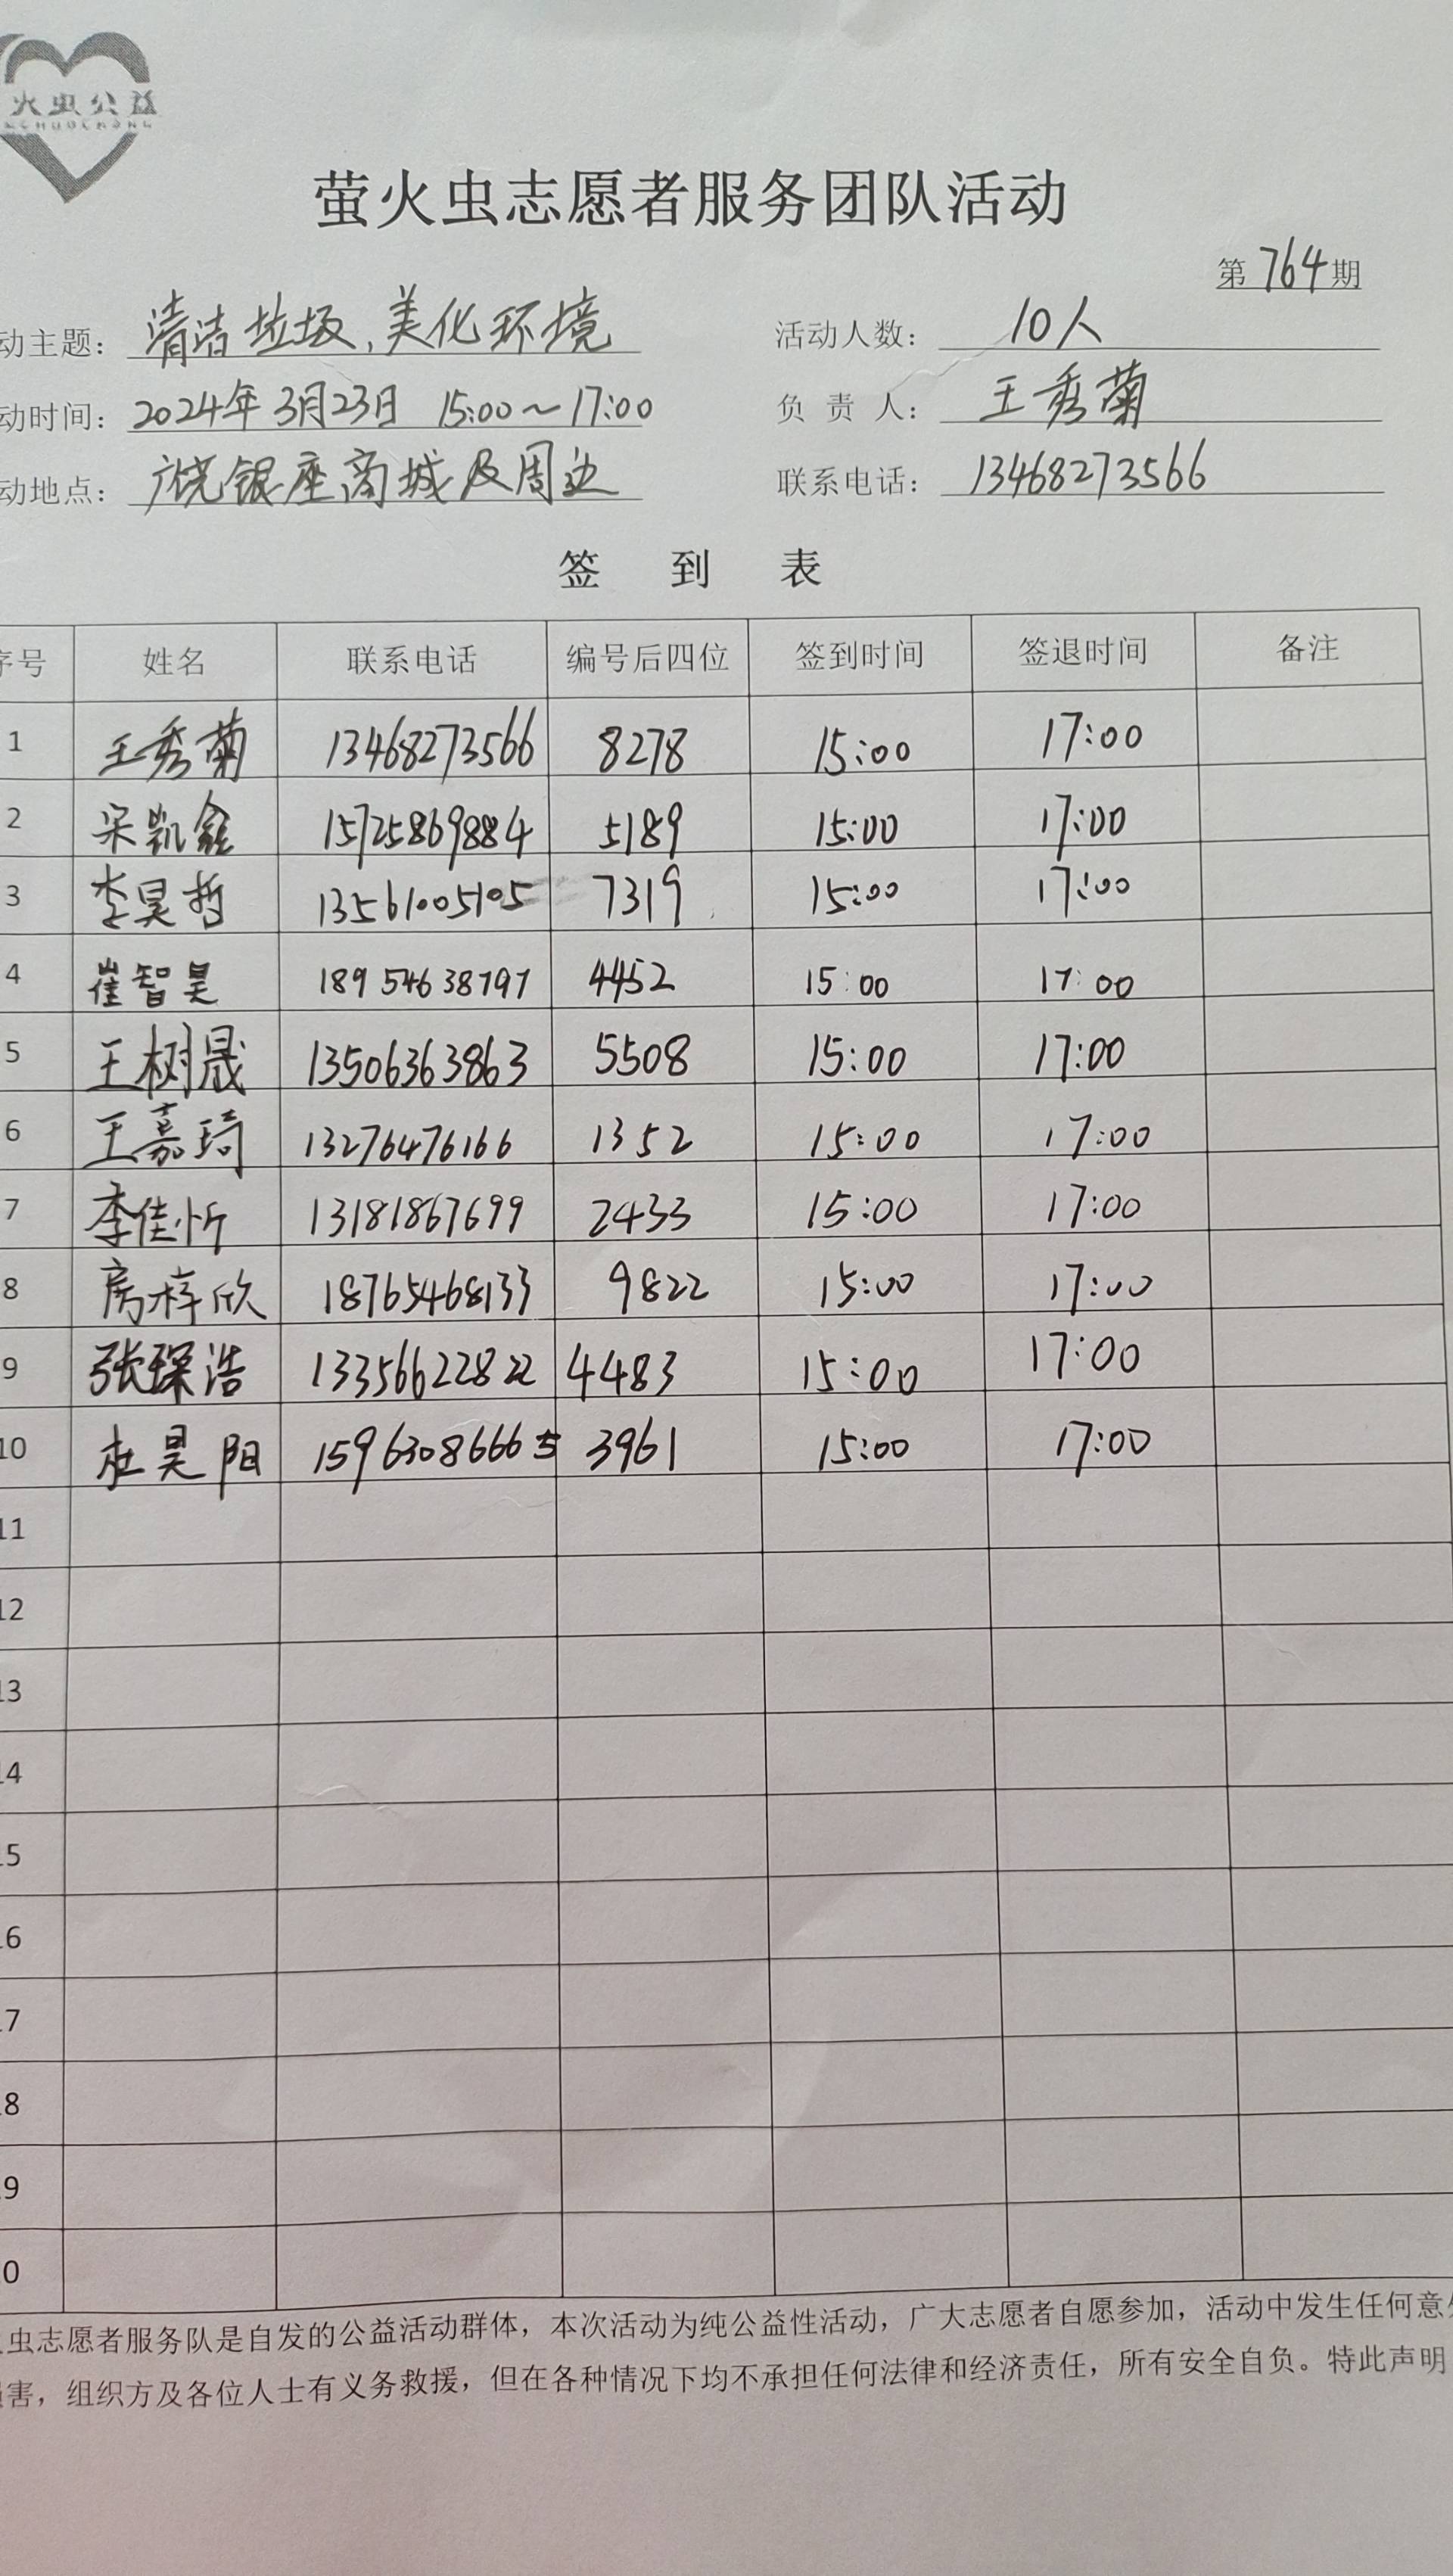 火虫公益
萤火虫志愿者服务团队活动
第764期
动主题：清洁垃圾、美化环境 活动人数：10人
动时间：2024年3月23日 15:00～17:00 负责人：王秀菊
动地点：广饶银座商城及周边 联系电话：13468273566
签到表
序号 姓名 联系电话 编号后四位 签到时间 签退时间 备注
1 王秀菊 13468273566 8278 15:00 17:00
2 宋凯鑫 15725869884 5189 15:00 17:00
3 李昊哲 13561005105 7319 15:00 17:00
4 崔智昊 18954638797 4452 15:00 17:00
5 王树晟 13506363863 5508 15:00 17:00
6 王嘉琦 13276476166 1352 15:00 17:00
7 李佳忻 13181867699 2433 15:00 17:00
8 房梓欣 18765468133 9822 15:00 17:00
9 张琛浩 13356622822 4483 15:00 17:00
10 杜昊阳 15963086665 3961 15:00 17:00
11
12
13
14
15
16
17
18
19
20
虫志愿者服务队是自发的公益活动群体，本次活动为纯公益性活动，广大志愿者自愿参加，活动中发生任何意外
害，组织方及各位人士有义务救援，但在各种情况下均不承担任何法律和经济责任，所有安全自负。特此声明